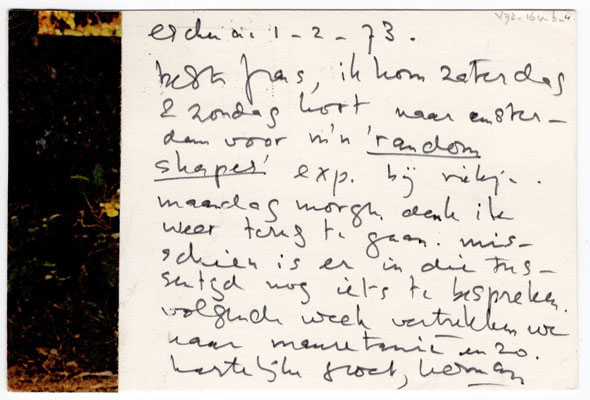 1-2-73.
beste frans, ik kom zaterdag
& zondag kort naar amster-
dam voor m'n 'random
shapes' exp. bij riekje.
maandag morgen denk ik
weer terug te gaan. mis-
schien is er in die tus-
sentijd nog iets te bespreken.
volgende week vertrekken we
naar mauretanië en zo.
hartelijke groet, herman